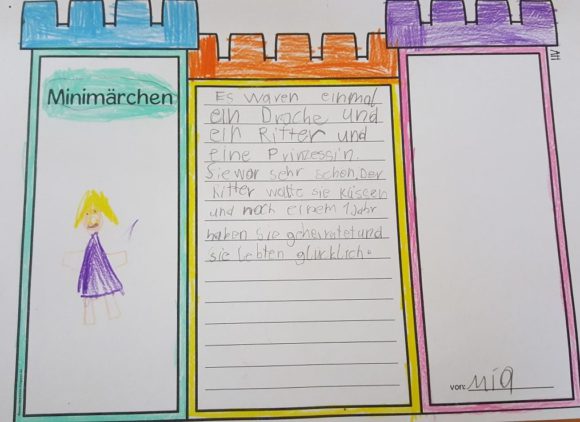 Minimärchen
Es waren einmal
ein Drache und
ein Ritter und
eine Prinzessin.
Sie war sehr schön. Der
Ritter wollte sie küssen
und nach einem 1 Jahr
haben sie geheiratet und
sie lebten glücklich.
von: Mia